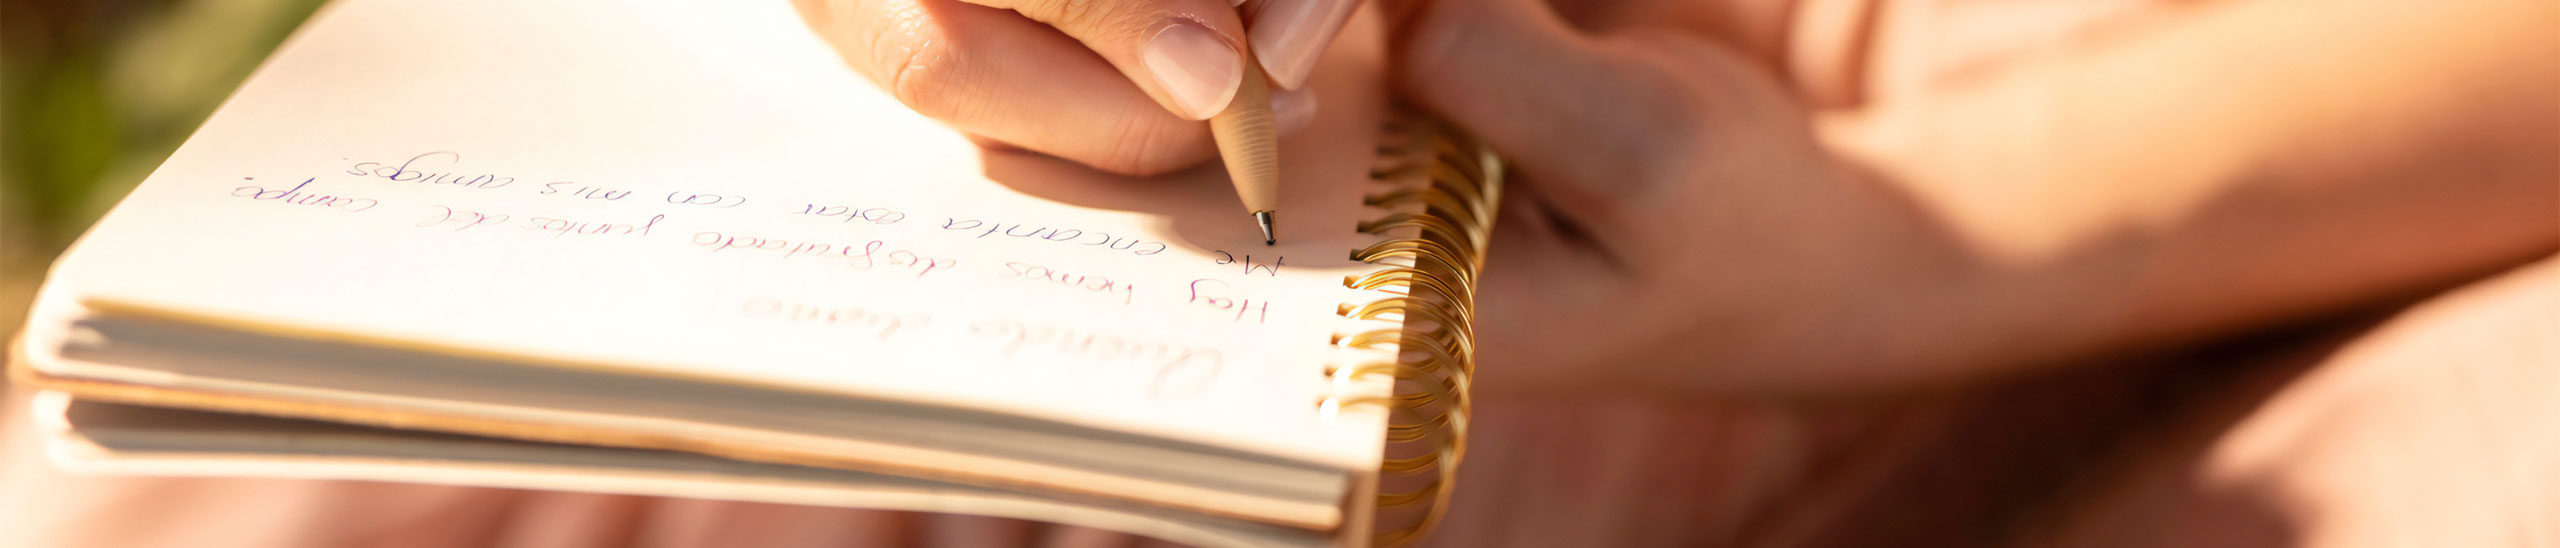 Querido diario:
Hoy hemos disfrutado juntos del campo.
Me encanta estar con mis amigos.